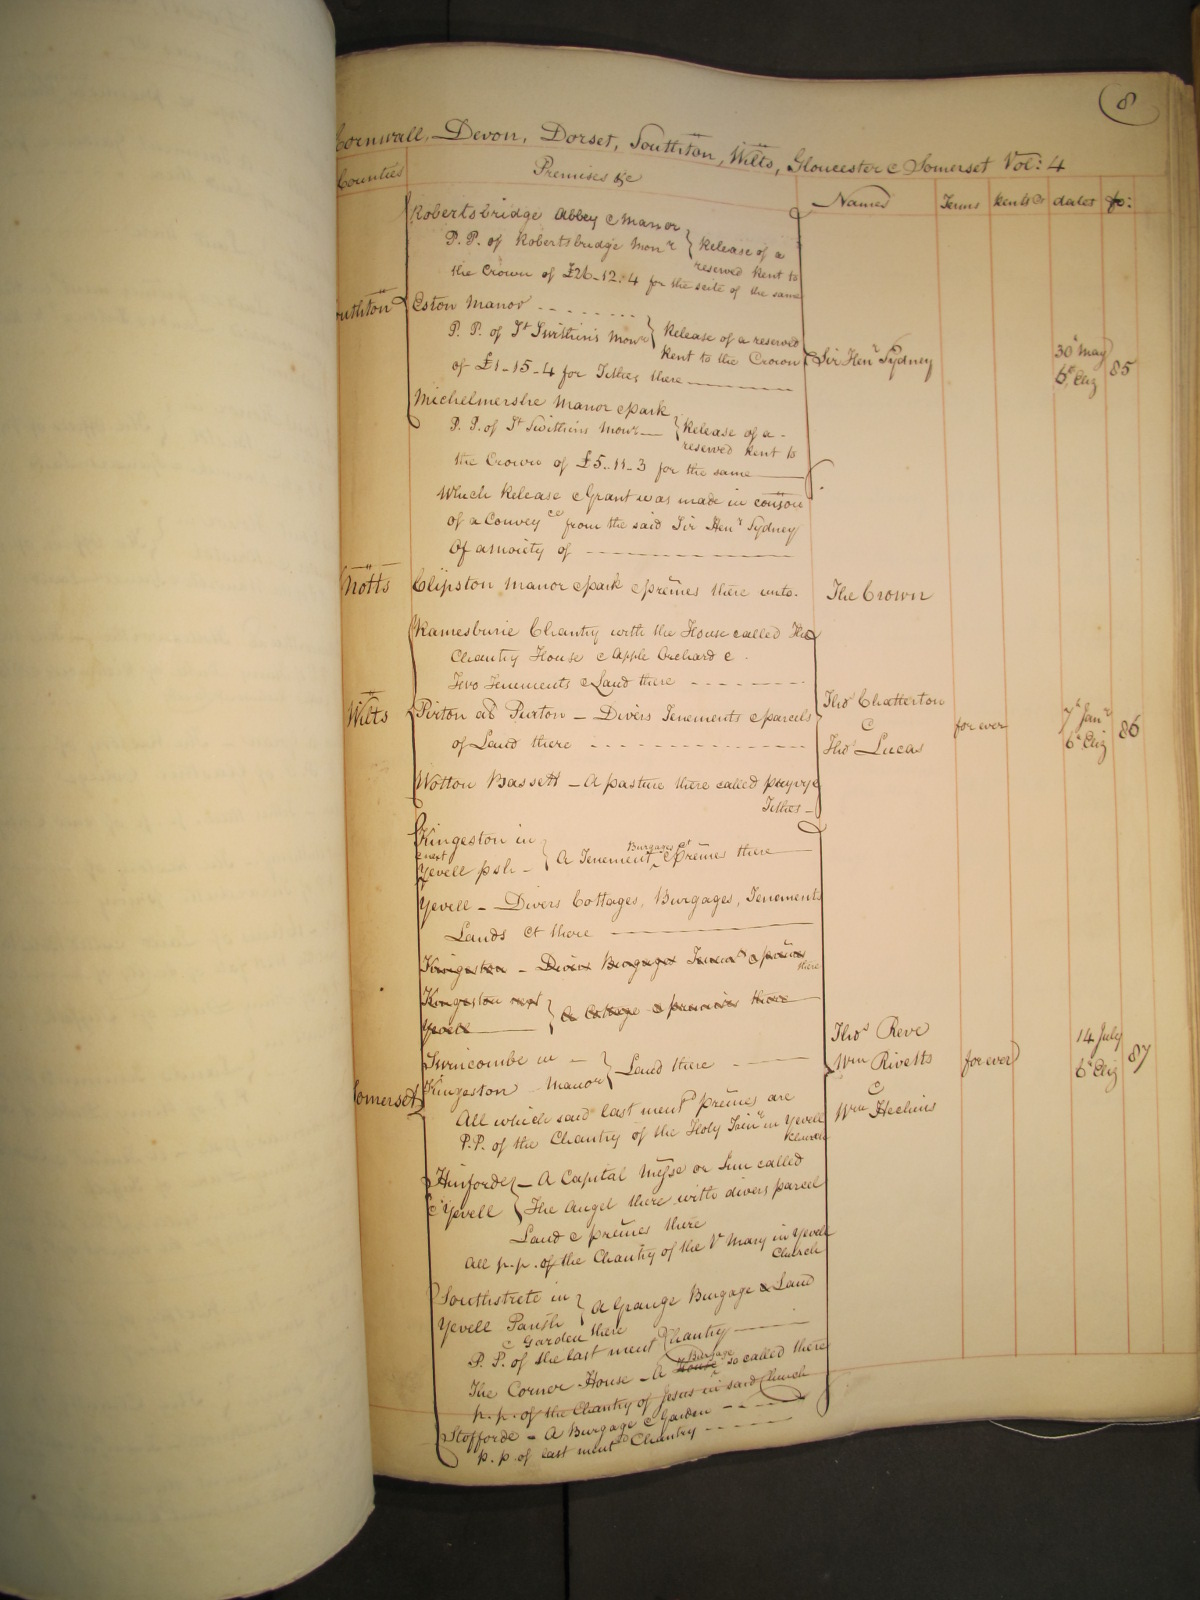 8
Cornwall, Devon, Dorset, Southton, Wilts, Gloucester & Somerset Vol: 4
Counties Premises &c Names Terms Rents &c dates fo:
Robertsbridge Abbey & Manor
P. P. of Robertsbridge Monry } Release of a
reserved Rent to
the Crown of £26-12:4 for the scite of the same
Southton Eston Manor
P. P. of St Swithins Monry } Release of a reserved
Rent to the Crown
of £1-15-4 for Tithes there
Sir Henr Sydney 30th May 6th Eliz 85
Michelmershe Manor & park
P. P. of St Swithins Monry } Release of a
reserved Rent to
the Crown of £5-11-3 for the same
Which Release & Grant was made in conson
of a Conveyce from the said Sir Henr Sydney
Of a moiety of
Notts Clipston Manor & park & prēmes there unto. The Crown
Ramesburie Chantry with the House called The
Chantry House & Apple Orchard &
Two Tenements & Land there
Wilts Pirton als Purton – Divers Tenements & parcels
of Land there
Thos Chatterton
&
Thos Lucas
for ever 7th Janr 6th Eliz 86
Wotton Bassett – A pasture there called
Tithes
Kingeston in
& next
Yevell psh – } A Tenement, Burgages et & prēmes there
Yevell – Divers Cottages, Burgages, Tenements
Lands &c there
Kingeston – Divers Burgages Tenemts & prēmes
there
Kingeston next
Yevell } A Cottage & premises there
Swincombe in –
Kingeston Manor } Land there
Somerset
Thos Reve
Wm Rivetts
&
Wm Hechins
for ever 14 July 6th Eliz 87
All which said last mentd prēmes are
P. P. of the Chantry of the Holy Trinr in Yevell
Church
Hinforde
& Yevell } – A Capital Messe or Inn called
The Angel there with divers parcel
Land & prēmes there
All p. p. of the Chantry of the V Mary in Yevell
Church
Southstrete in
Yevell Parish } A Grange Burgage & Land
& Garden there
P. P. of the last ment Chantry
The Corner House – A House Burgage so called there
p. p. of the Chantry of Jesus in said Church
Stofforde – A Burgage & Garden
p. p. of last mentd Chantry